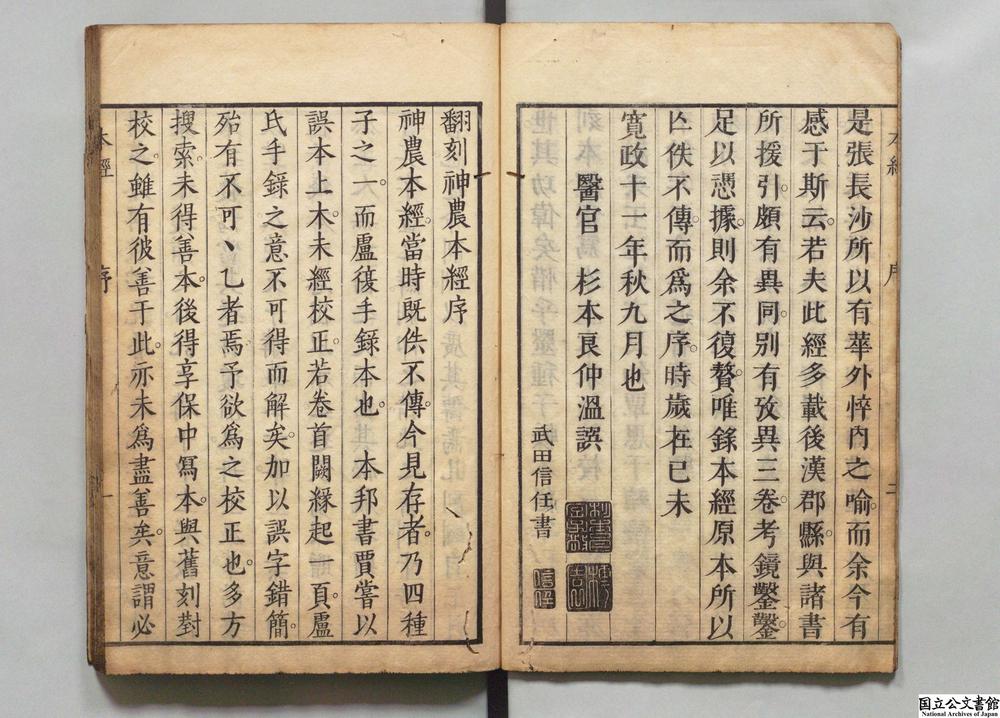 是張長沙所以有華外悴内之喻。而余今有
感于斯云。若夫此經多載後漢郡縣。與諸書
所援引。頗有異同。別有攷異三卷。考鏡鑿鑿。
足以憑據。則余不復贅。唯錄本經原本所以
亾佚不傳。而爲之序。時歲在己未
寬政十一年秋九月也
醫官 杉本良仲溫誤
武田信任書
翻刻神農本經序
神農本經。當時既佚不傳。今見存者。乃四種
子之一。而盧復手錄本也。本邦書賈嘗以
誤本上木。未經校正。若卷首闕緣起一頁。盧
氏手錄之意不可得而解矣。加以誤字錯簡。
殆有不可丶乙者焉。予欲爲之校正也。多方
搜索。未得善本。後得享保中寫本。與舊刻對
校之。雖有彼善于此。亦未爲盡善矣。意謂必
本經 序 一
国立公文書館
National Archives of Japan